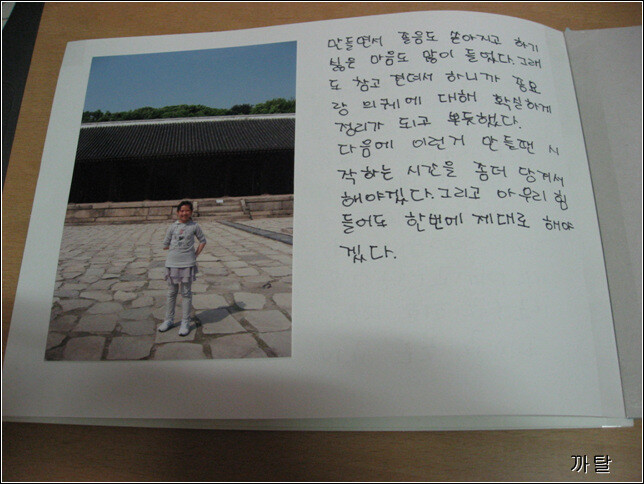 만들면서 졸음도 쏟아지고 하기
싫은 마음도 많이 들었다.그래
도 참고 견뎌서 하니까 종묘
랑 의궤에 대해 확실하게
정리가 되고 뿌듯했다.
다음에 이런거 만들땐 시
작하는 시간을 좀더 당겨서
해야겠다.그리고 아무리 힘
들어도 한번에 제대로 해야
겠다.
까탈